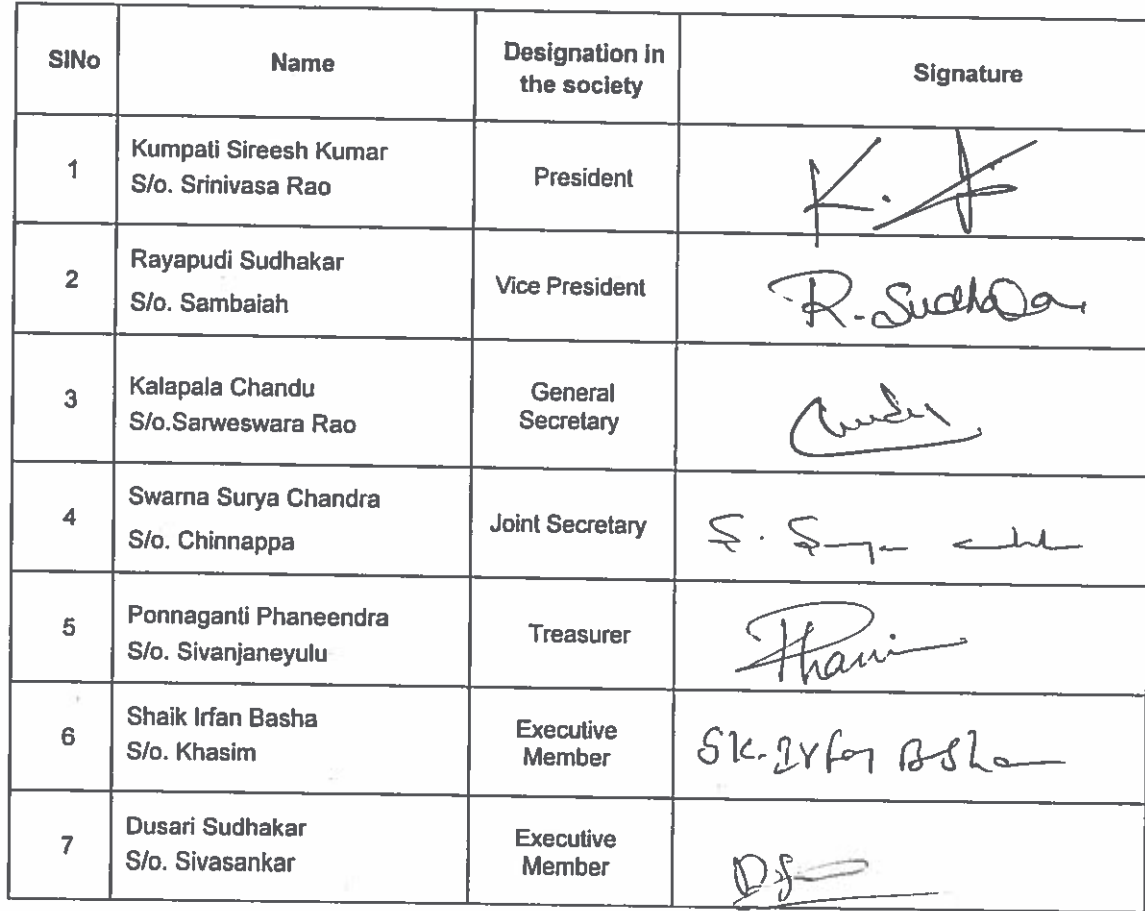 SlNo
Name
Designation in
the society
Signature
1
Kumpati Sireesh Kumar
S/o. Srinivasa Rao
President
K.
2
Rayapudi Sudhakar
S/o. Sambaiah
Vice President
R. Sudhakar
3
Kalapala Chandu
S/o.Sarweswara Rao
General
Secretary
Chandu
4
Swarna Surya Chandra
S/o. Chinnappa
Joint Secretary
S. Surya
5
Ponnaganti Phaneendra
S/o. Sivanjaneyulu
Treasurer
Phani
6
Shaik Irfan Basha
S/o. Khasim
Executive
Member
SK. Irfan Basha
7
Dusari Sudhakar
S/o. Sivasankar
Executive
Member
D.S